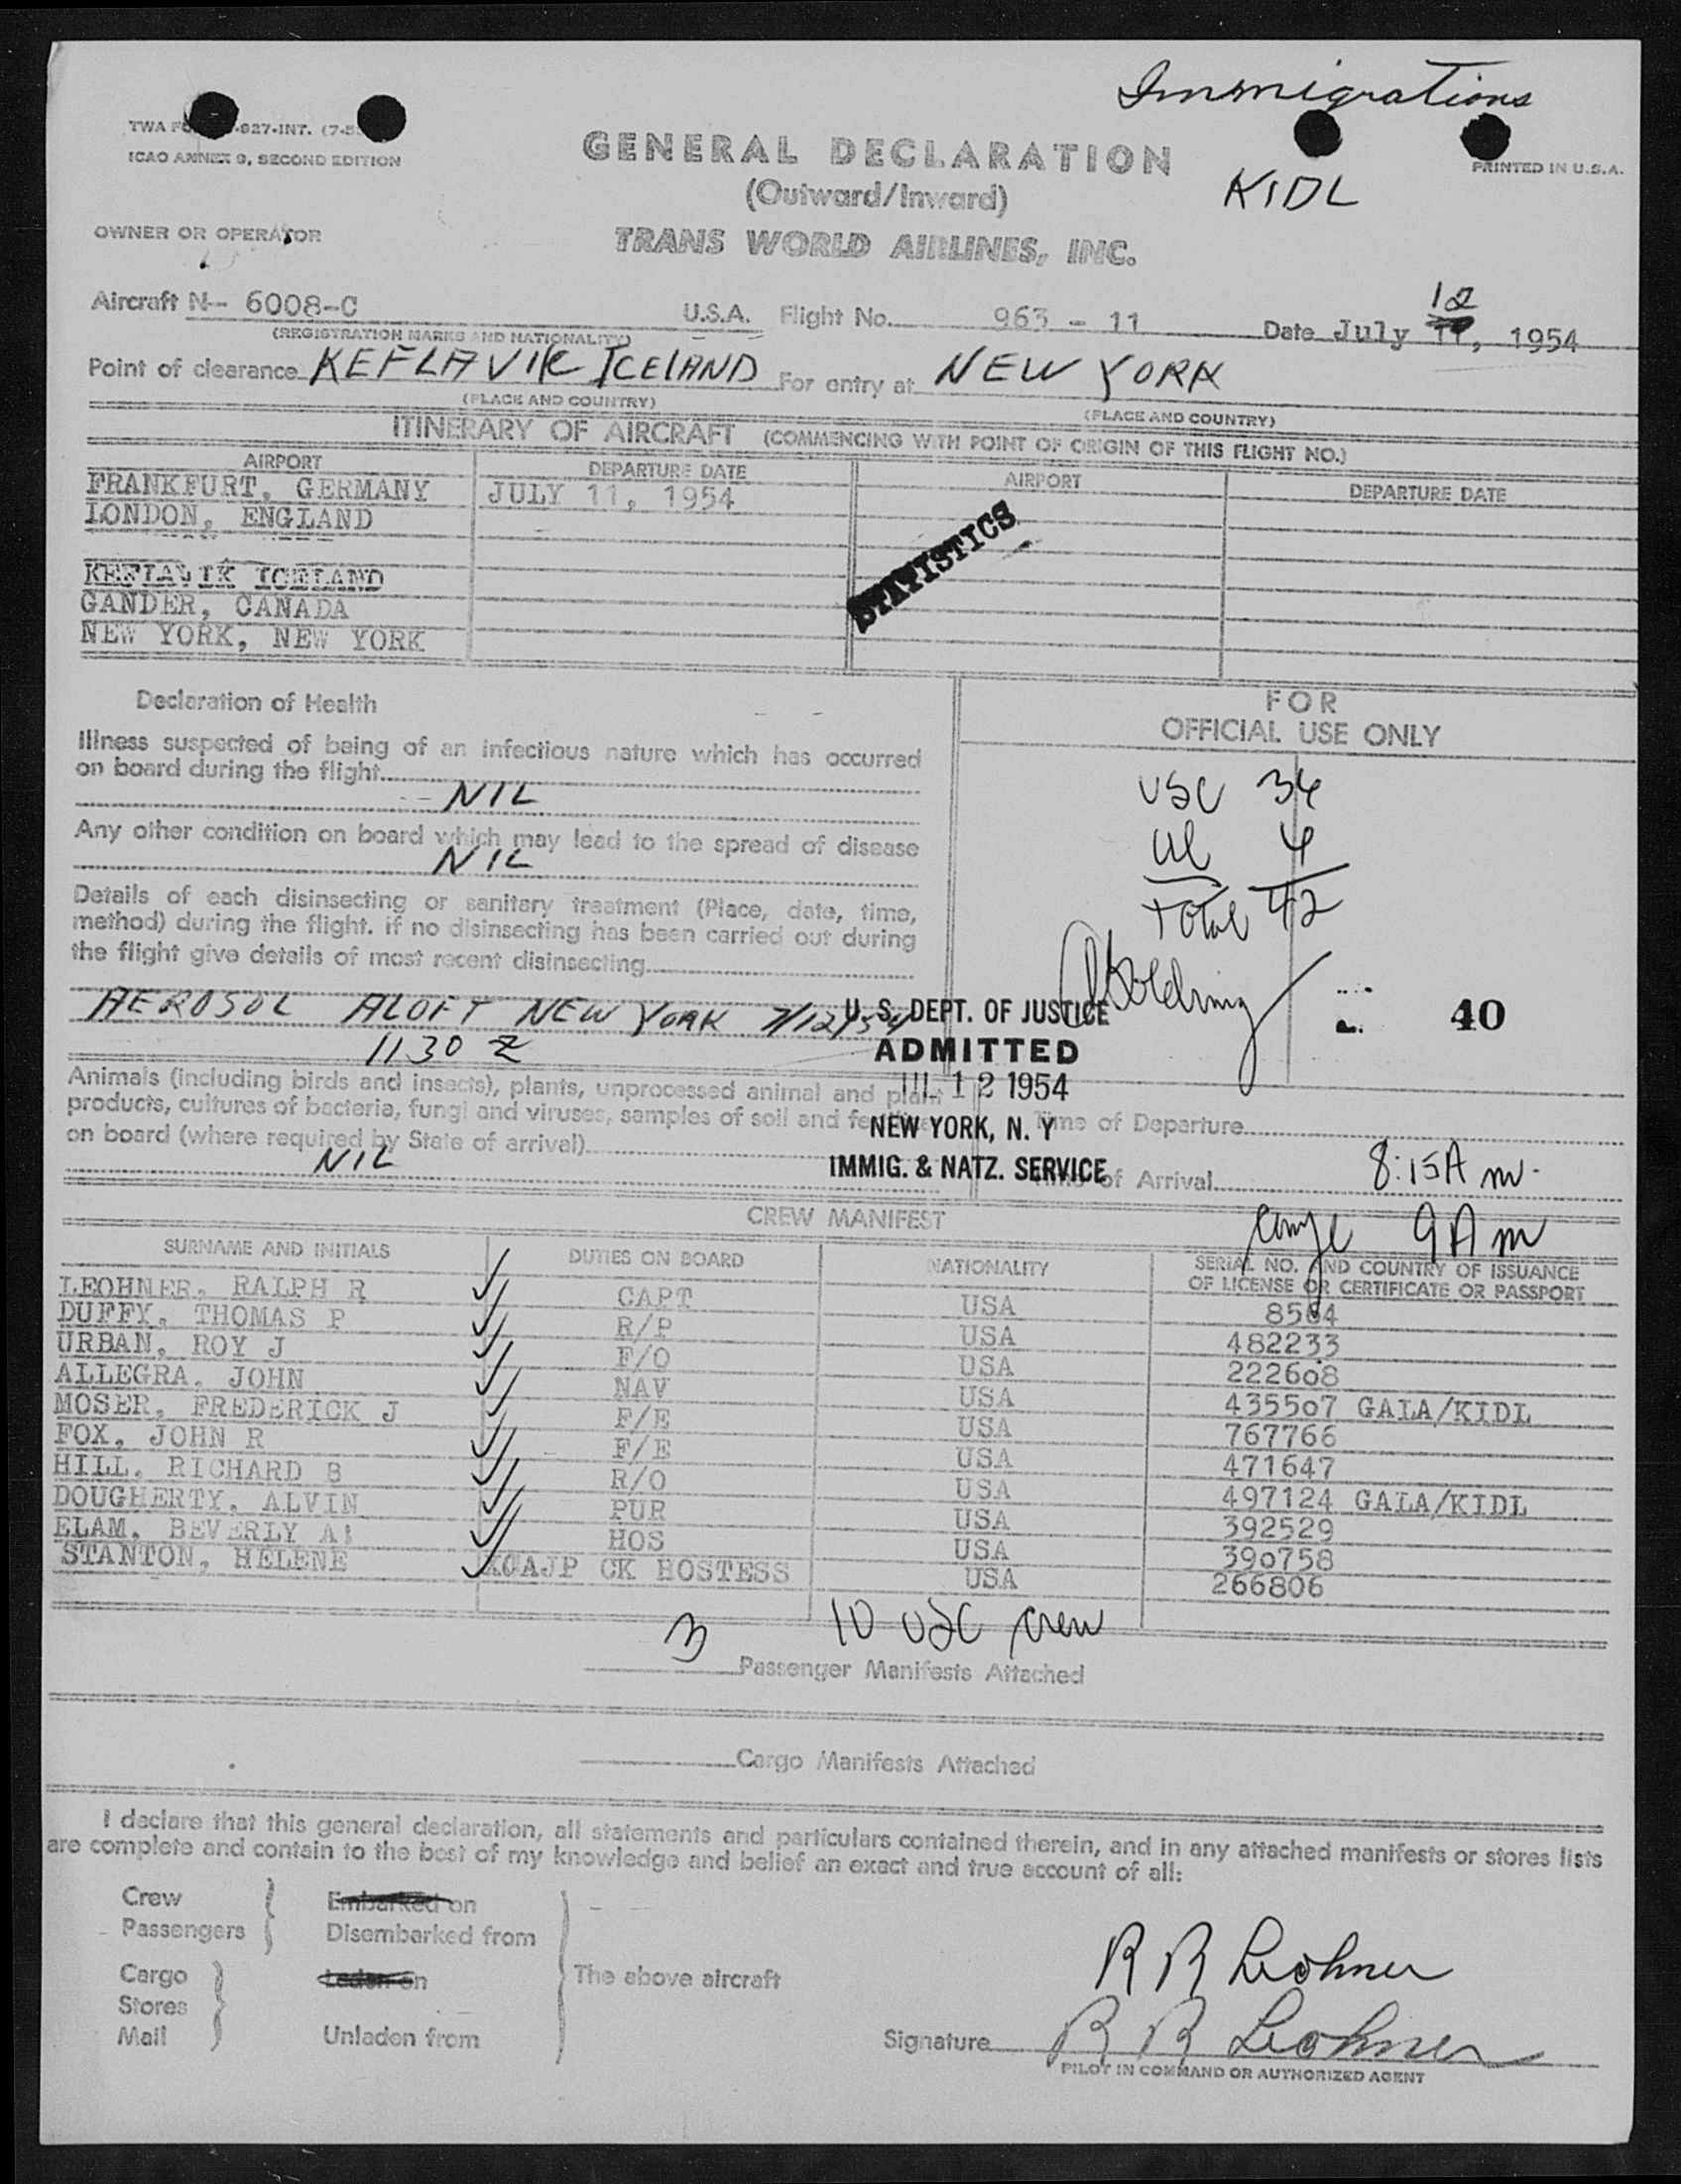 Immigrations
TWA FO -927-INT. (7-5
ICAO ANNEX 9, SECOND EDITION
PRINTED IN U.S.A.
GENERAL DECLARATION
KIDL
(Outward/Inward)
OWNER OR OPERATOR
TRANS WORLD AIRLINES, INC.
Aircraft N- 6008-C U.S.A. Flight No. 963 - 11 Date July 12, 1954
(REGISTRATION MARKS AND NATIONALITY)
Point of clearance KEFLAVIK ICELAND For entry at NEW YORK
(PLACE AND COUNTRY) (PLACE AND COUNTRY)
ITINERARY OF AIRCRAFT (COMMENCING WITH POINT OF ORIGIN OF THIS FLIGHT NO.)
AIRPORT DEPARTURE DATE AIRPORT DEPARTURE DATE
FRANKFURT, GERMANY JULY 11, 1954
LONDON, ENGLAND
STATISTICS
KEFLAVIK ICELAND
GANDER, CANADA
NEW YORK, NEW YORK
Declaration of Health
FOR
OFFICIAL USE ONLY
Illness suspected of being of an infectious nature which has occurred
on board during the flight
NIL
Any other condition on board which may lead to the spread of disease
NIL
USC 34
al 4
Total 42
Details of each disinsecting or sanitary treatment (Place, date, time,
method) during the flight. if no disinsecting has been carried out during
the flight give details of most recent disinsecting
AEROSOL ALOFT NEW YORK 7/12/54
1130 Z
40
U. S. DEPT. OF JUSTICE
ADMITTED
JUL 12 1954
NEW YORK, N. Y
IMMIG. & NATZ. SERVICE
Animals (including birds and insects), plants, unprocessed animal and plant
products, cultures of bacteria, fungi and viruses, samples of soil and fe
on board (where required by State of arrival)
NIL
Time of Departure
of Arrival 8:15A m.
9 A m
CREW MANIFEST
SURNAME AND INITIALS DUTIES ON BOARD NATIONALITY SERIAL NO. AND COUNTRY OF ISSUANCE
OF LICENSE OR CERTIFICATE OR PASSPORT
LEOHNER, RALPH R CAPT USA 8564
DUFFY, THOMAS P R/P USA 482233
URBAN, ROY J F/O USA 222608
ALLEGRA, JOHN NAV USA 435507 GALA/KIDL
MOSER, FREDERICK J F/E USA 767766
FOX, JOHN R F/E USA 471647
HILL, RICHARD B R/O USA 497124 GALA/KIDL
DOUGHERTY, ALVIN PUR USA 392529
ELAM, BEVERLY A HOS USA 390758
STANTON, HELENE CK HOSTESS USA 266806
10 USC crew
3 Passenger Manifests Attached
Cargo Manifests Attached
I declare that this general declaration, all statements and particulars contained therein, and in any attached manifests or stores lists
are complete and contain to the best of my knowledge and belief an exact and true account of all:
Crew Embarked on
Passengers Disembarked from
Cargo Laden on The above aircraft
Stores
Mail Unladen from
R R Leohner
Signature R R Leohner
PILOT IN COMMAND OR AUTHORIZED AGENT